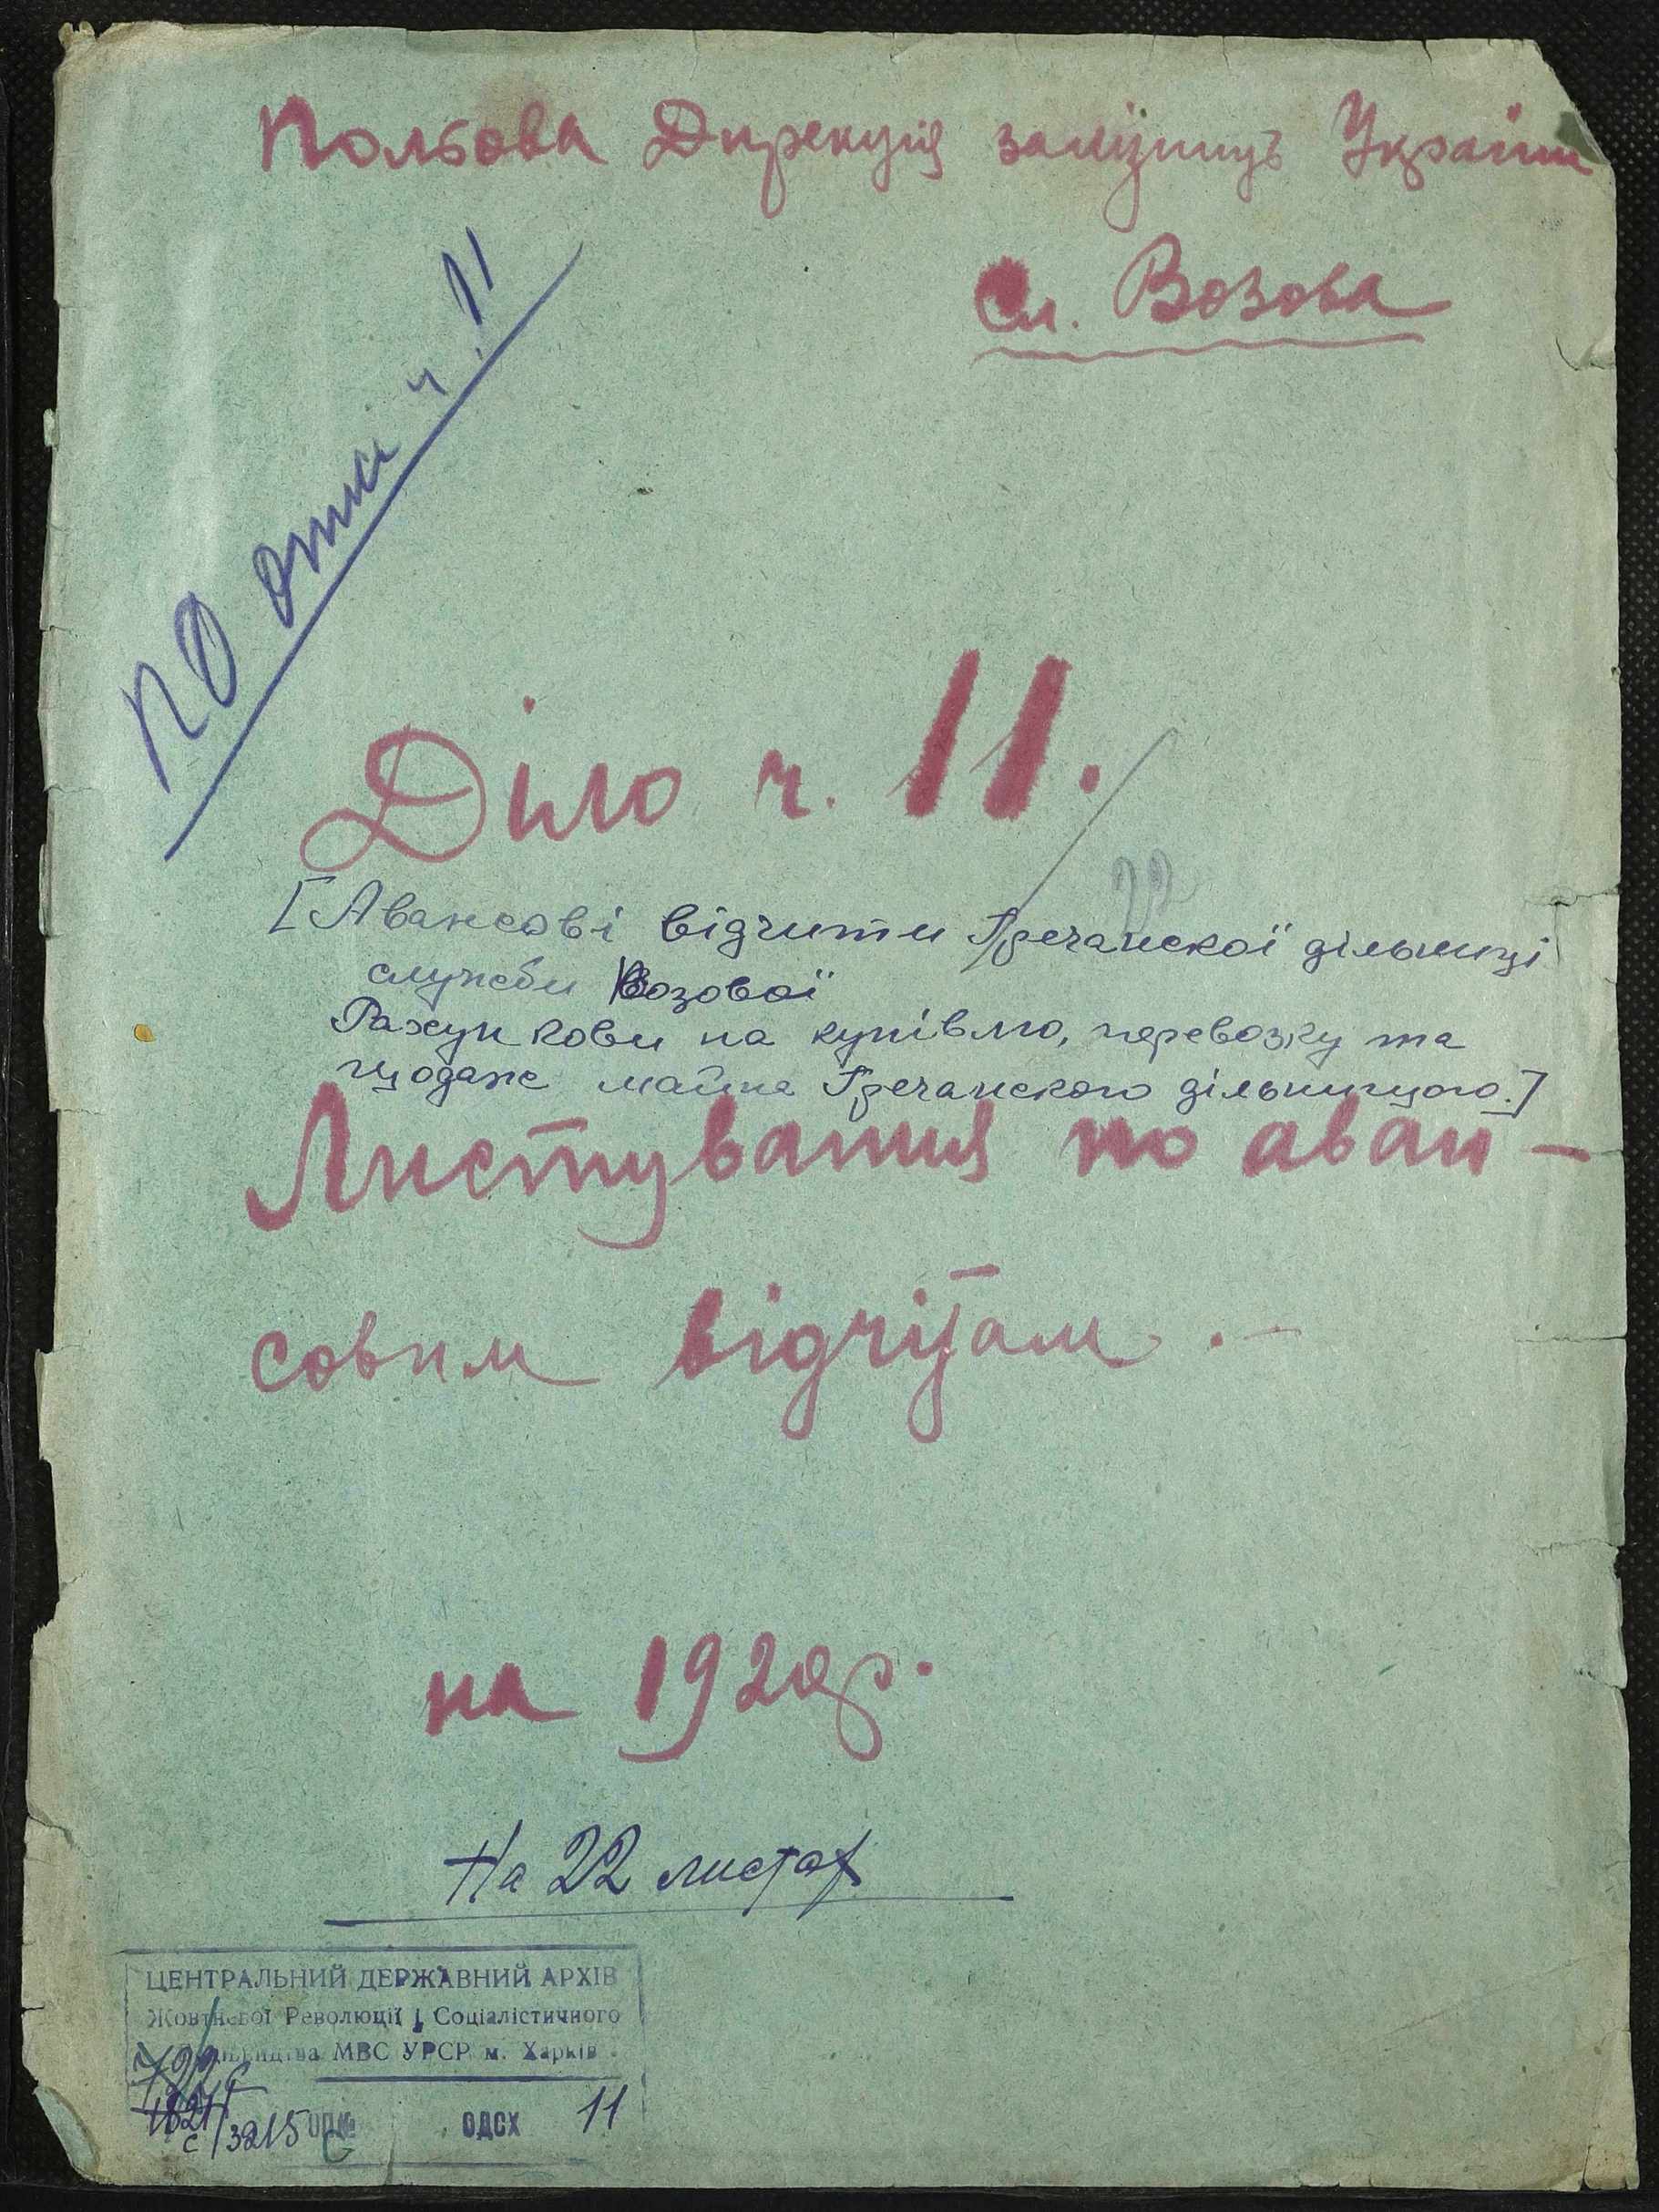 Польова Дирекція залізниць України
Сл. Возова
ПО оти ч. 11
Діло ч. 11.
22
[Авансові відчити Гречанскої дільниці
служби Возової
Рахункови на купівлю, перевозку та
продаж майна Гречанского дільничого.]
Листування по аван-
совим відчітам.-
на 1920р.
На 22 листах
ЦЕНТРАЛЬНИЙ ДЕРЖАВНИЙ АРХІВ
Жовтневої Революції і Соціалістичного
будівництва МВС УРСР м. Харків
с/3215 ОДСХ 11